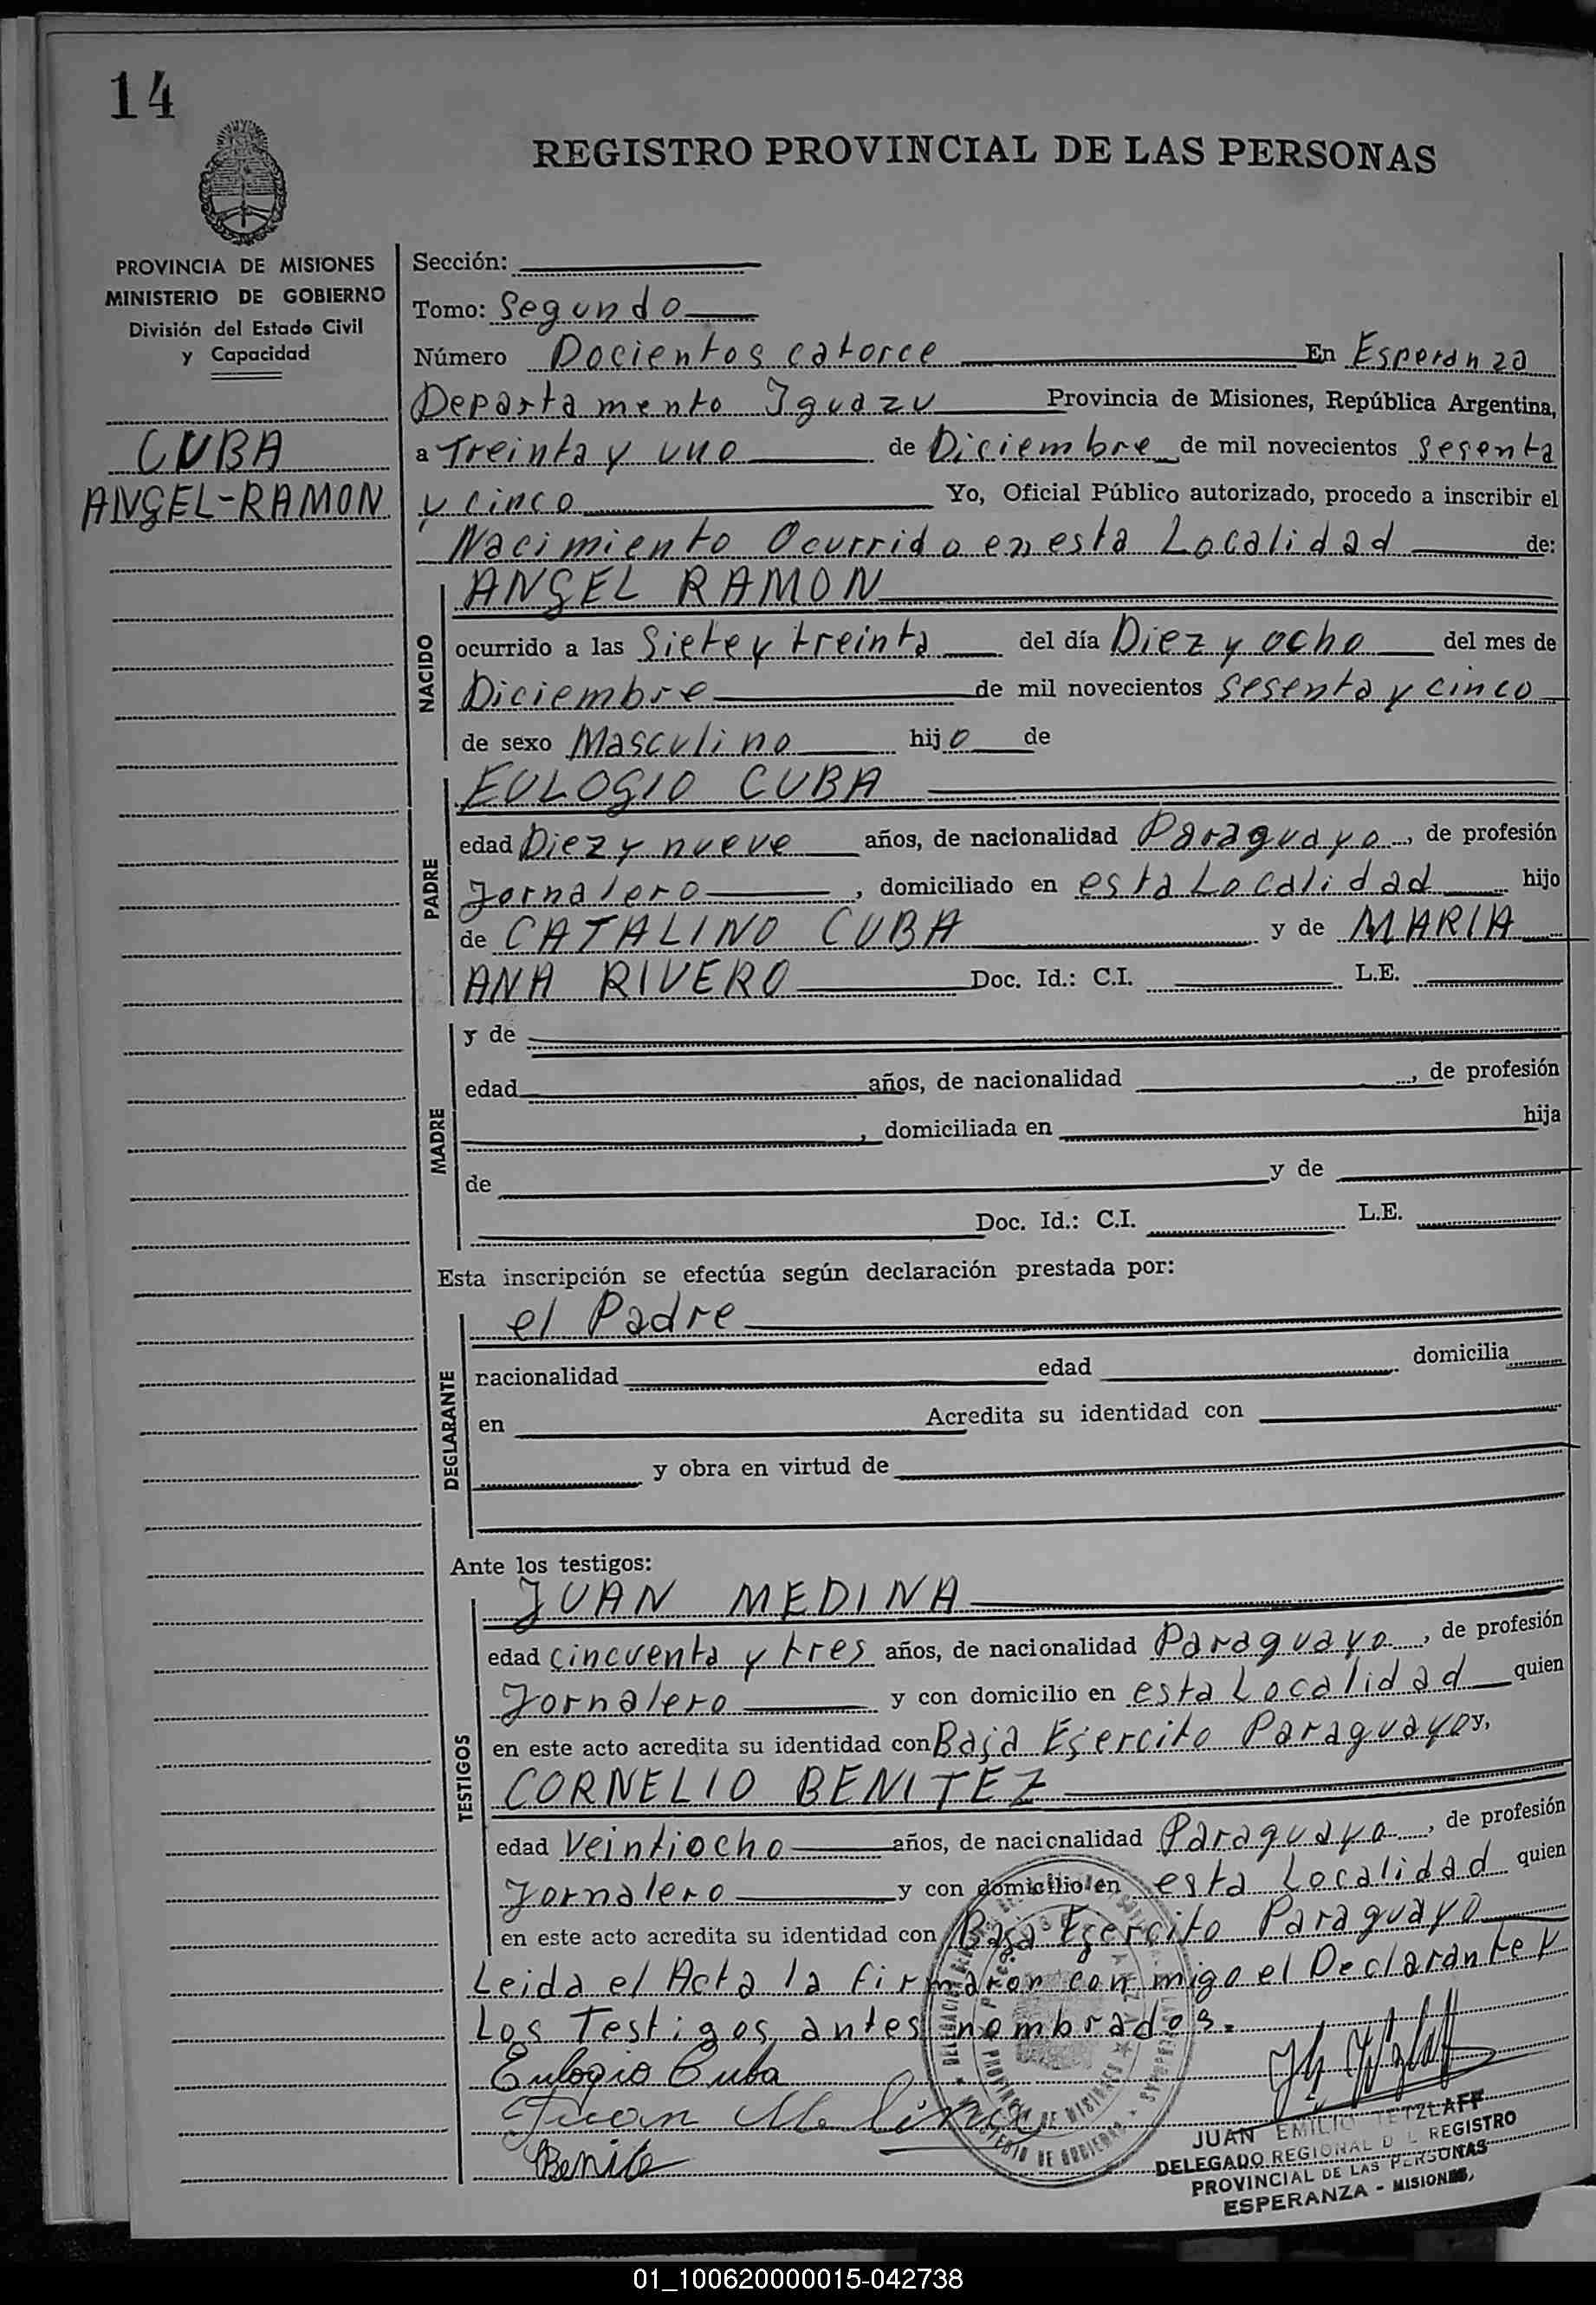 14
REGISTRO PROVINCIAL DE LAS PERSONAS
PROVINCIA DE MISIONES
MINISTERIO DE GOBIERNO
División del Estado Civil
y Capacidad
CUBA
ANGEL-RAMON
Sección:
Tomo: Segundo
Número Docientos catorce En Esperanza
Departamento Iguazu Provincia de Misiones, República Argentina,
a Treinta y uno de Diciembre de mil novecientos sesenta
y cinco Yo, Oficial Público autorizado, procedo a inscribir el
Nacimiento Ocurrido en esta Localidad de:
NACIDO
ANGEL RAMON
ocurrido a las Siete y treinta del día Diez y ocho del mes de
Diciembre de mil novecientos sesenta y cinco
de sexo Masculino hijo de
PADRE
EULOGIO CUBA
edad Diez y nueve años, de nacionalidad Paraguayo, de profesión
Jornalero, domiciliado en esta Localidad hijo
de CATALINO CUBA y de MARIA
ANA RIVERO Doc. Id.: C.I. L.E.
MADRE
y de
edad años, de nacionalidad , de profesión
, domiciliada en hija
de y de
Doc. Id.: C.I. L.E.
Esta inscripción se efectúa según declaración prestada por:
DECLARANTE
el Padre
nacionalidad edad domicilia
en Acredita su identidad con
y obra en virtud de
Ante los testigos:
TESTIGOS
JUAN MEDINA
edad cincuenta y tres años, de nacionalidad Paraguayo, de profesión
Jornalero y con domicilio en esta Localidad quien
en este acto acredita su identidad con Baja Ejercito Paraguayo y,
CORNELIO BENITEZ
edad Veintiocho años, de nacionalidad Paraguayo, de profesión
Jornalero y con domicilio en esta Localidad quien
en este acto acredita su identidad con Baja Ejercito Paraguayo
Leida el Acta la firmaron conmigo el Declarante y
Los Testigos antes nombrados.
Eulogio Cuba
Juan
Benite
PROVINCIA DE MISIONES
MINISTERIO DE GOBIERNO
JUAN EMILIO TETZLAFF
DELEGADO REGIONAL D L REGISTRO
PROVINCIAL DE LAS PERSONAS
ESPERANZA - MISIONES,
01_100620000015-042738